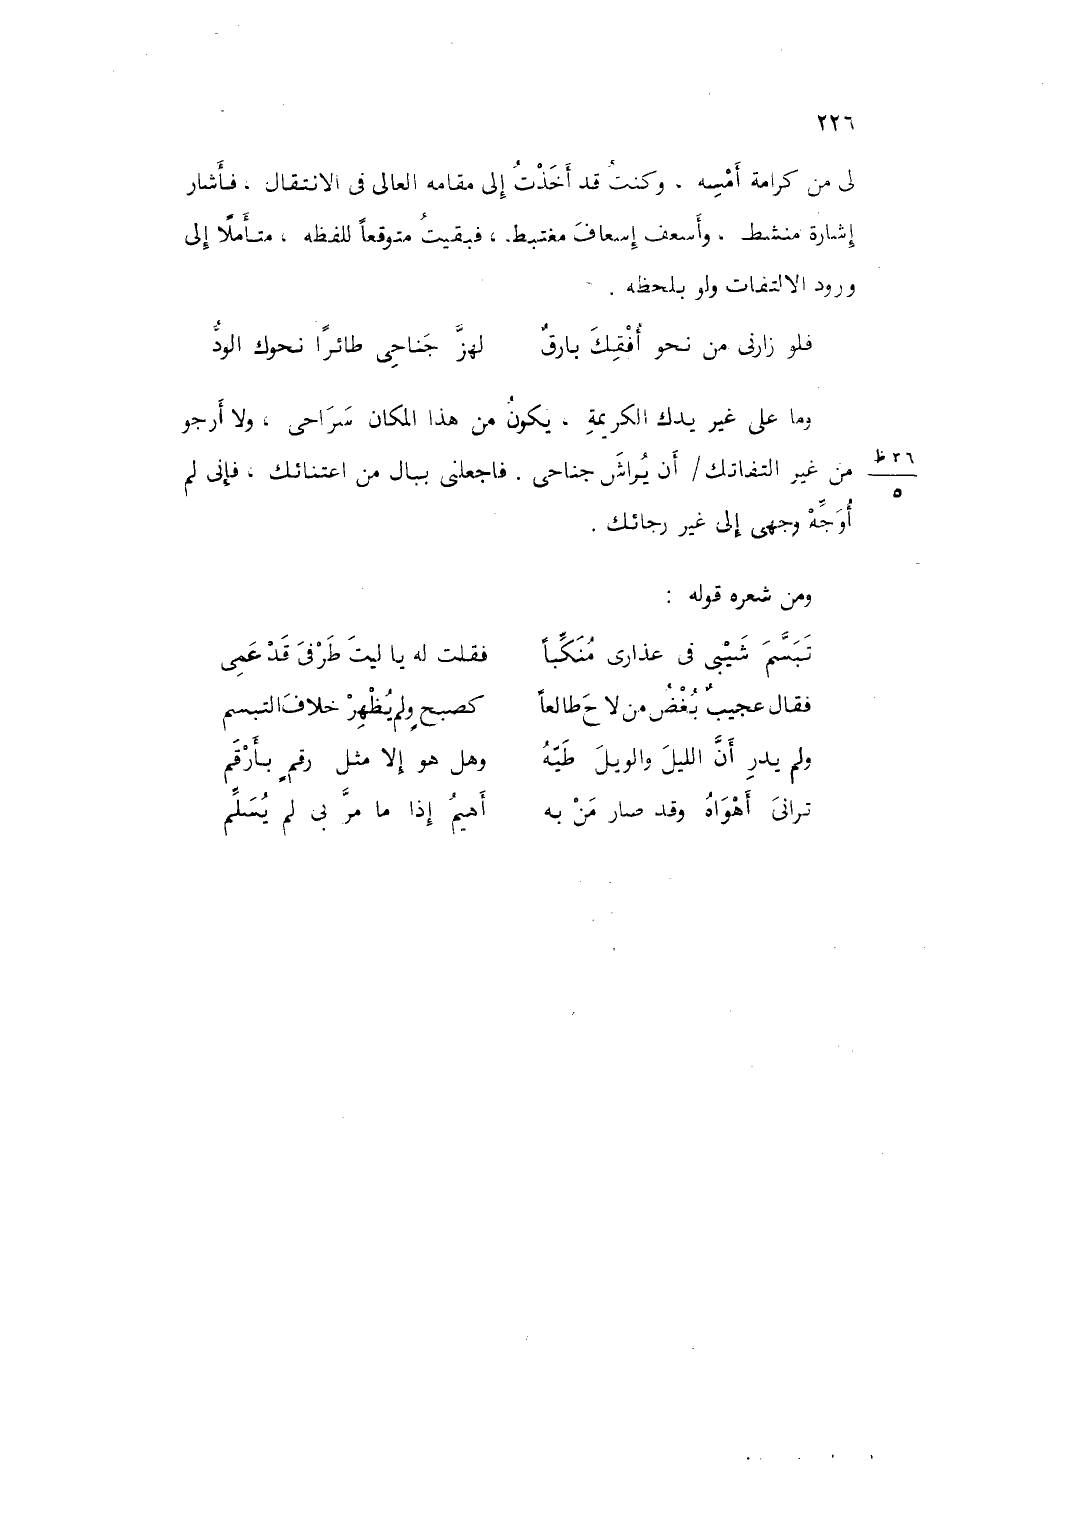 ٢٢٦
لى من كرامة أَمْسِه . وكنتُ قد أَخَذْتُ إلى مقامه العالى فى الانتقال ، فأَشار
إشارة منشط . وأَسعف إسعافَ مغتبط ، فبقيتُ متوقعاً للفظه ، متأَملًا إلى
ورود الالتفات ولو بلحظه .
فلو زارنى من نحو أُفْقِكَ بارقٌ لهزَّ جَناحِى طائرًا نحوك الودُّ
وما على غير يدك الكريمةِ ، يكونُ من هذا المكان سَرَاحى ، ولا أَرجو
من غير التفاتك / أَن يُراشَ جناحى . فاجعلنى ببال من اعتنائك ، فإنى لم
٢٦ ظ
٥
أُوَجِّهْ وجهى إلى غير رجائك .
ومن شعره قوله :
تَبَسَّمَ شَيْبِى فى عذارى مُنَكِّباً فقلت له يا ليتَ طَرْفىَ قَدْ عَمِى
فقال عجيبٌ بُغْضُ من لاحَ طالعاً كصبحٍ ولم يُظْهِرْ خلافَ التبسم
ولم يدرِ أَنَّ الليلَ والويلَ طَيّهُ وهل هو إلا مثل رقمٍ بأَرْقَم
ترانىَ أَهْوَاهُ وقد صار مَنْ به أَهيمُ إذا ما مرَّ بى لم يُسَلِّم